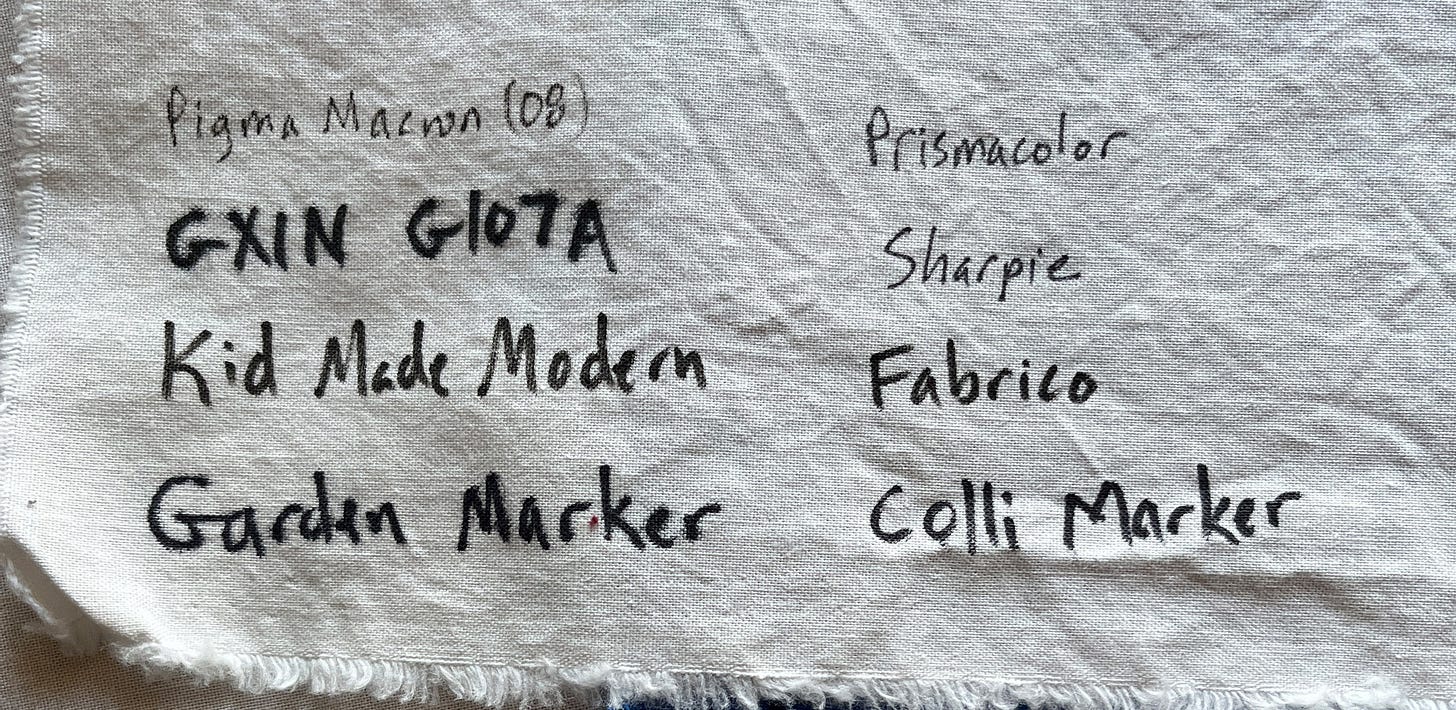 Pigma Macron (08)
GXIN G107A
Kid Made Modern
Garden Marker
Prismacolor
Sharpie
Fabrico
Colli Marker